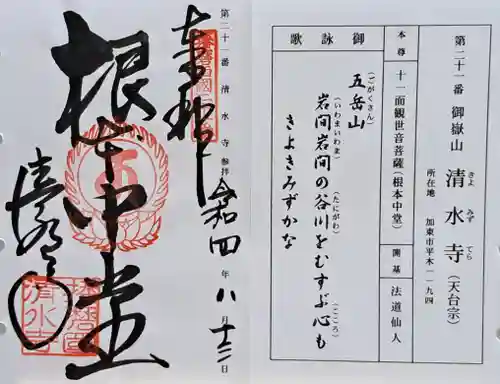 第二十一番 御嶽山 清水寺(天台宗)
きよ みず てら
所在地 加東市平木一一九四
本尊 十一面観世音菩薩(根本中堂)
開基 法道仙人
御詠歌
五岳山
(ごがくさん)
岩間岩間の谷川をむすぶ心も
(いわまいわま)
(たにがわ)
(こころ)
きよきみずかな
第二十一番 清水寺 参拝 令和四年八月十三日
根本中堂
清水寺